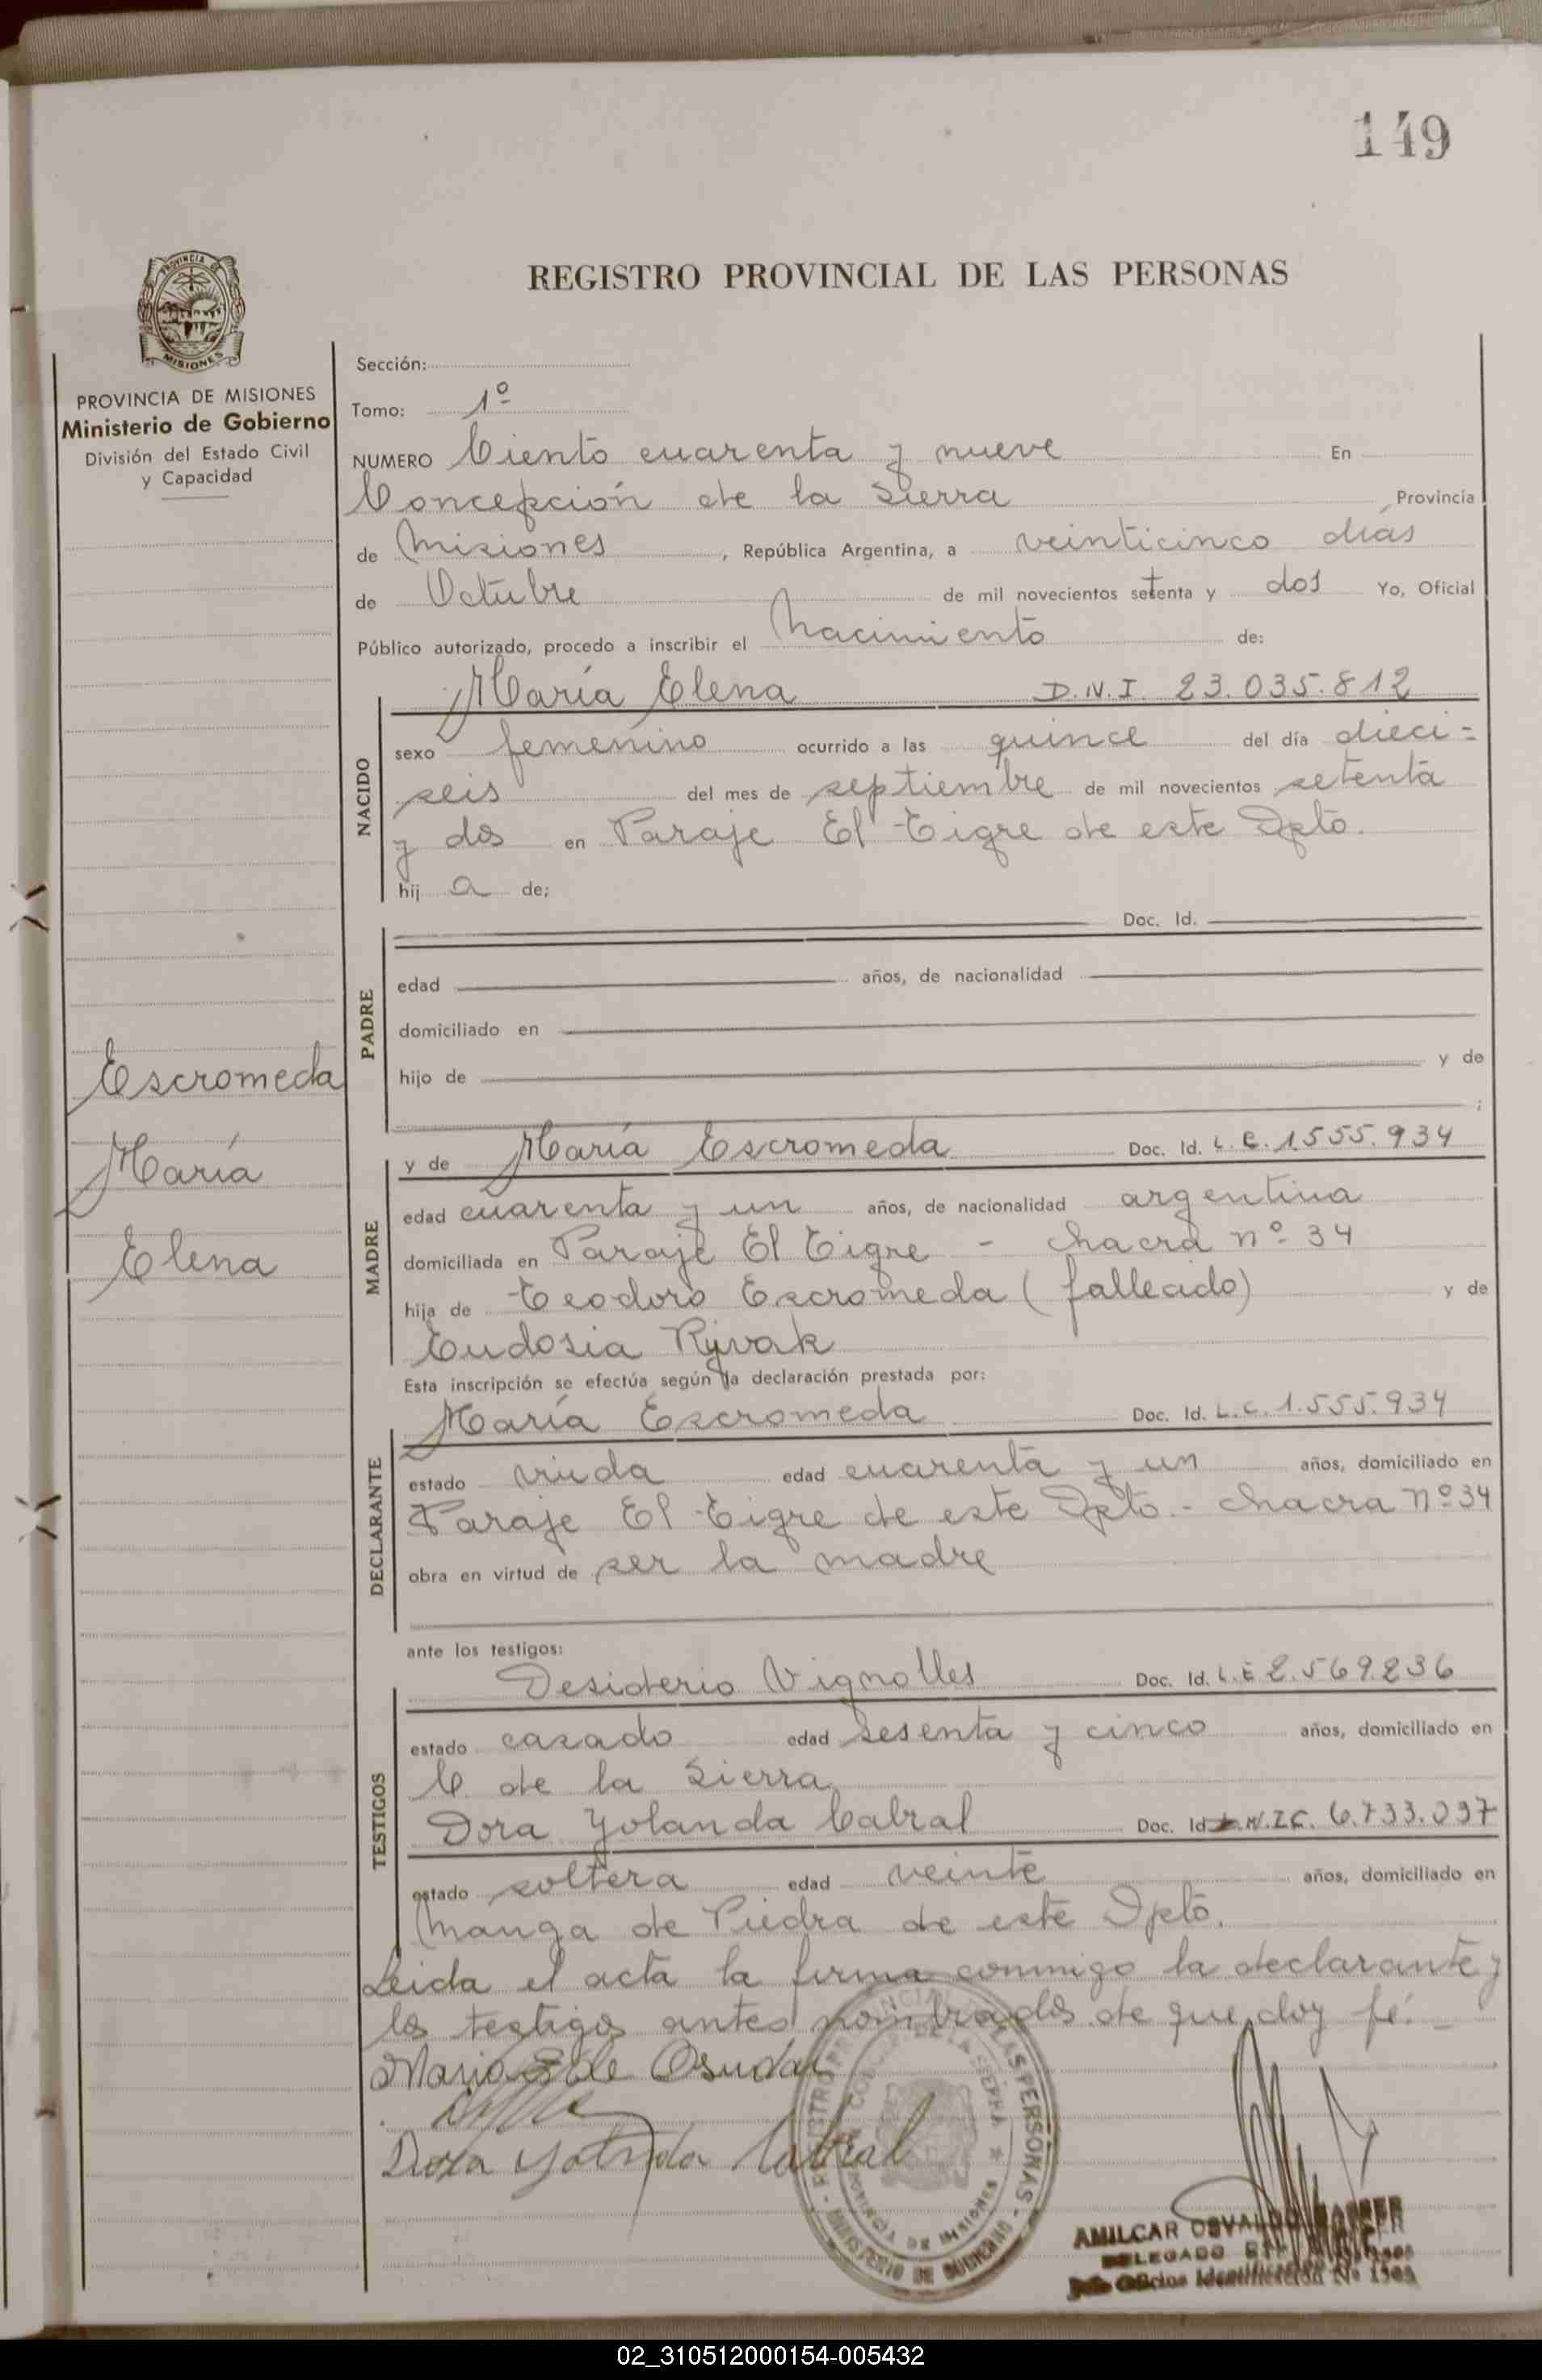 149
REGISTRO PROVINCIAL DE LAS PERSONAS
PROVINCIA DE
MISIONES
PROVINCIA DE MISIONES
Ministerio de Gobierno
División del Estado Civil
y Capacidad
Escromeda
María
Elena
Sección:
Tomo: 1º
NUMERO Ciento cuarenta y nueve En
Concepción de la Sierra Provincia
de Misiones, República Argentina, a veinticinco días
de Octubre de mil novecientos setenta y dos Yo, Oficial
Público autorizado, procedo a inscribir el Nacimiento de:
María Elena D.N.I. 23.035.812
NACIDO
sexo femenino ocurrido a las quince del día dieci=
seis del mes de septiembre de mil novecientos setenta
y dos en Paraje El Tigre de este Dpto.
hij a de;
PADRE
Doc. Id.
edad años, de nacionalidad
domiciliado en
hijo de y de
;
MADRE
y de María Escromeda Doc. Id. L.C. 1.555.934
edad cuarenta y un años, de nacionalidad argentina
domiciliada en Paraje El Tigre - Chacra nº 34
hija de Teodoro Escromeda (fallecido) y de
Eudosia Ryvak
Esta inscripción se efectúa según la declaración prestada por:
DECLARANTE
María Escromeda Doc. Id. L.C. 1.555.934
estado viuda edad cuarenta y un años, domiciliado en
Paraje El Tigre de este Dpto. - Chacra nº 34
obra en virtud de ser la madre
ante los testigos:
TESTIGOS
Desiderio Vignolles Doc. Id. L.E 2.569.236
estado casado edad sesenta y cinco años, domiciliado en
C. de la Sierra
Dora Yolanda Cabral Doc. Id. 6.733.097
estado soltera edad veinte años, domiciliado en
Manga de Piedra de este Dpto.
Leida el acta la firma conmigo la declarante y
los testigos antes nombrados de que doy fé. -
Dora Yolanda Cabral
MINISTERIO DE GOBIERNO
PROVINCIA DE MISIONES
AMILCAR OSVALDO
DELEGADO
02_310512000154-005432